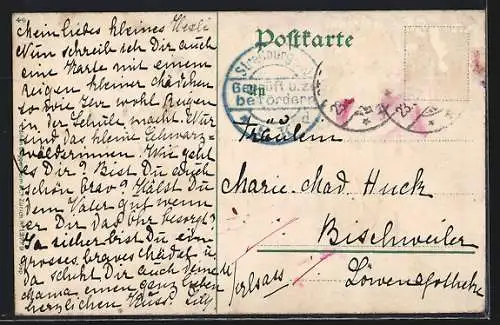 Mein liebes kleines Mesli
Nun schreib ich Dir auch
eine Karte mit einem
zeigen kleiner Mädchen
so wie Ihr wohl Reigen
in der Schule macht. Nur
sind das kleine Schwarz-
wälderinnen. Wie geht
es Dir? Bist Du auch
schön brav? Hälst Du
dem Vater gut wenn
er Dir das Ohr besorgt?
Ja sicher bist Du ein
grosses braves Mädel u.
da schickt Dir auch deine
Mama einen ganz lieben
herzlichen Kuss.
Postkarte
Strassburg
Geprüft u. zu
befördern
An
Fräulein
Marie Mad. Huck
Bischweiler
Elsass
Löwenapotheke